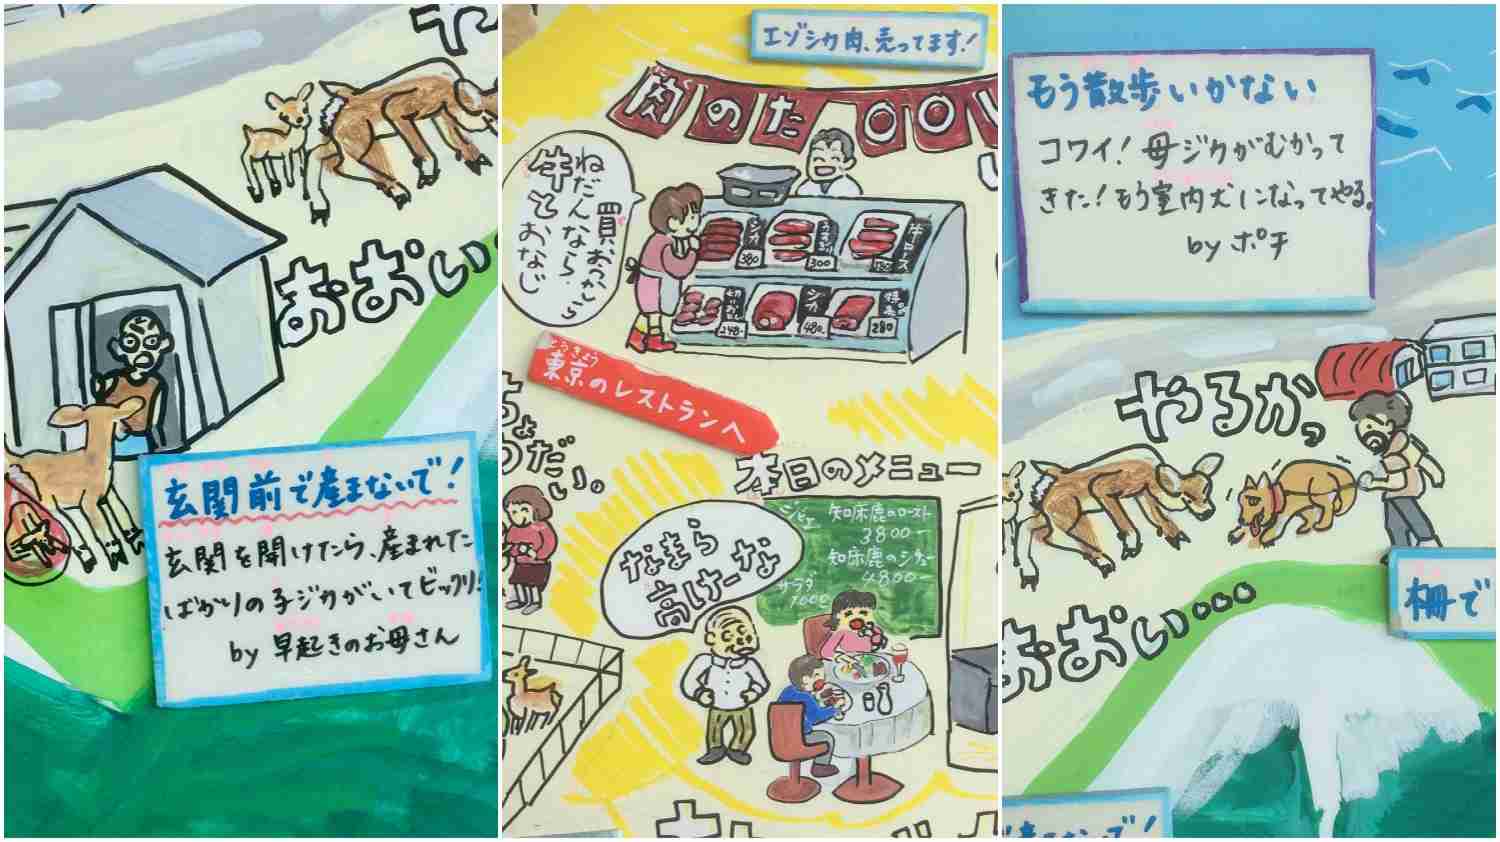 や
おおい
玄関前で産まないで!
玄関を開けたら、産まれた
ばかりの子ジカがいてビックリ!
by 早起きのお母さん
エゾシカ肉、売ってます!
肉のた
ねだんなら
牛とおなじ
買おうかしら
シカ
380
300
牛ロース
切りおとし
248-
シカ
480-
280
とうきょう
東京のレストランへ
だい。
本日のメニュー
なまら
高けーな
ジビエ
知床鹿のロースト
3800-
知床鹿のシチュー
4800-
サラダ
1000
もう散歩いかない
コワイ!母ジカがむかって
きた!もう室内犬になってやる。
by ポチ
やるかっ
おおい・・・
柵で
産まないで!